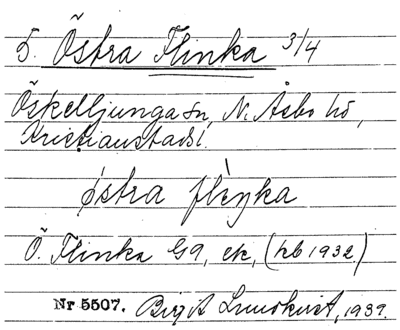 5. Östra Flinka 3/4
Öskelljunga sn, N. Åsbo hd,
Kristianstads l.
östra flìŋka
Ö. Flinka G9, ek, (kb 1932)
Nr 5507. Birgit Lundkvist, 1939.